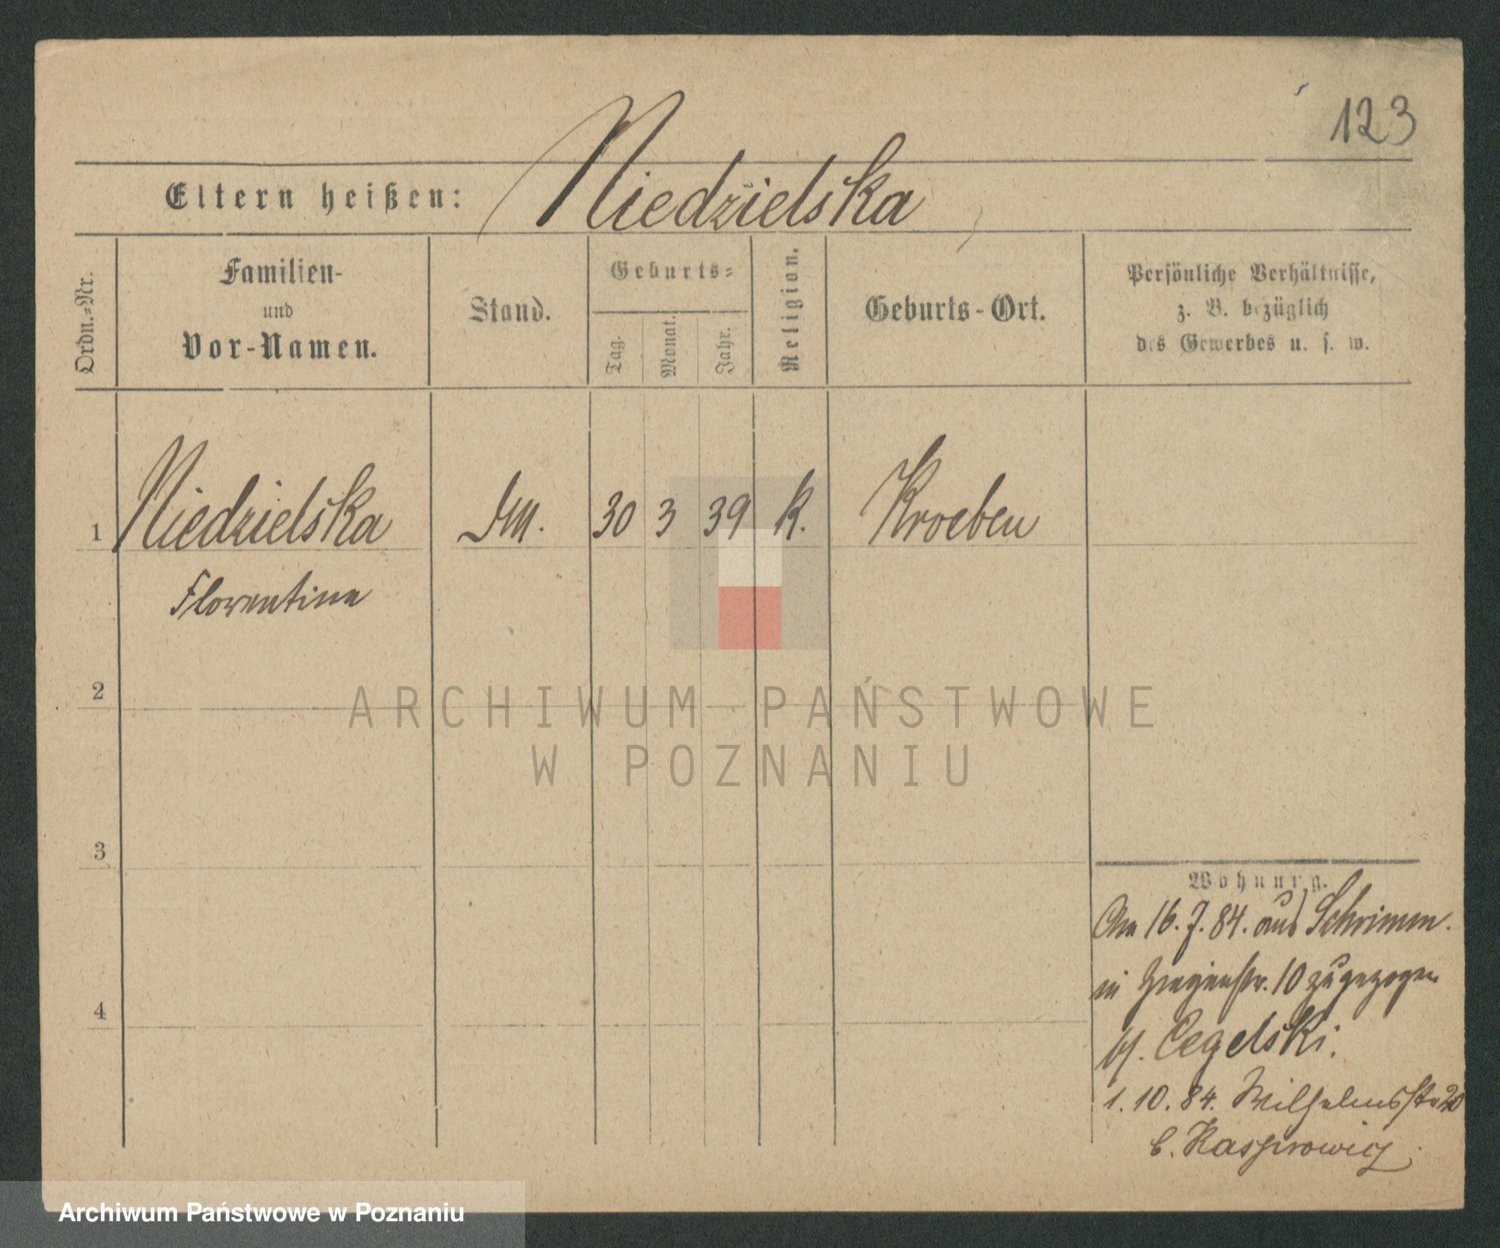 123
Eltern heißen: Niedzielska
Ordn.-Nr.
Familien-
und
Vor-Namen.
Stand.
Geburts-
Tag.
Monat.
Jahr.
Religion.
Geburts-Ort.
Persönliche Verhältnisse,
z. B. bezüglich
des Gewerbes u. s. w.
1 Niedzielska 30 3 39 k. Kroeben
Florentine
2
3
4
Wohnung.
Am 16. 7. 84. aus Schrimm.
in 10 zugezogen
Cegelski.
1. 10. 84. Wilhelmsstr 20
b. Kasprowicz
ARCHIWUM PAŃSTWOWE
W POZNANIU
Archiwum Państwowe w Poznaniu